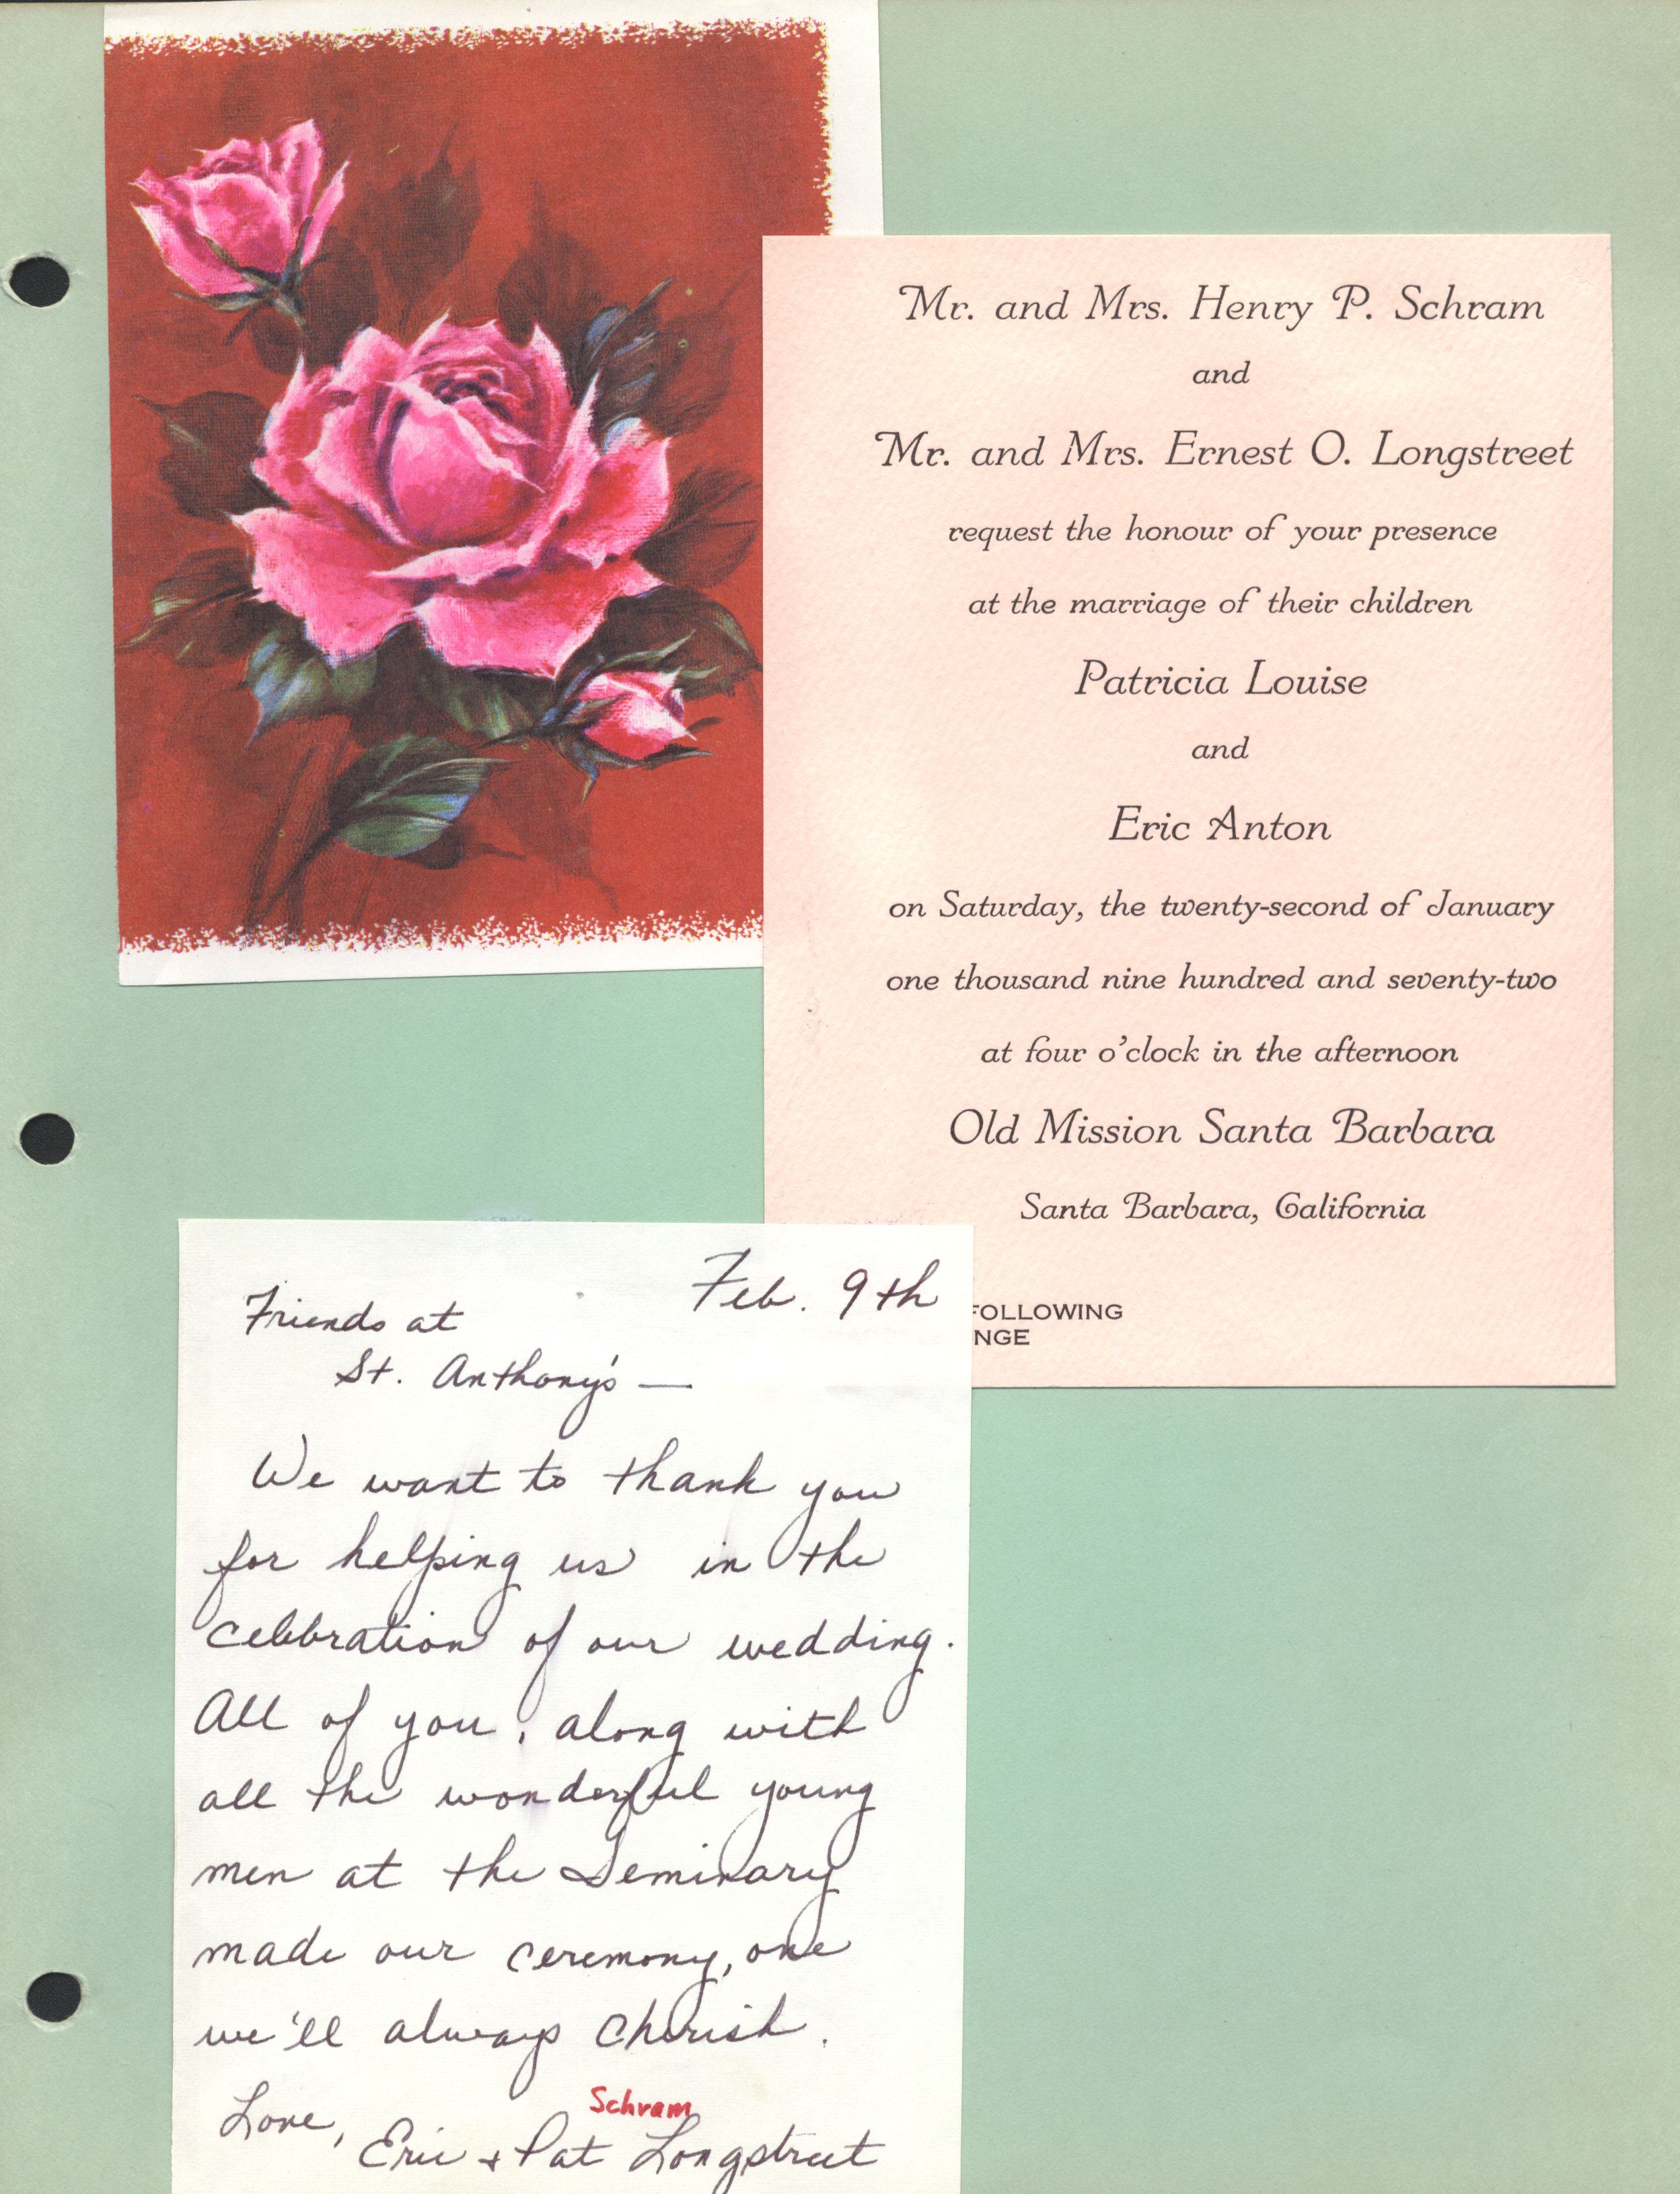 Mr. and Mrs. Henry P. Schram
and
Mr. and Mrs. Ernest O. Longstreet
request the honour of your presence
at the marriage of their children
Patricia Louise
and
Eric Anton
on Saturday, the twenty-second of January
one thousand nine hundred and seventy-two
at four o'clock in the afternoon
Old Mission Santa Barbara
Santa Barbara, California
FOLLOWING
NGE
Feb. 9th
Friends at
St. Anthony's —
We want to thank you
for helping us in the
celebration of our wedding.
All of you, along with
all the wonderful young
men at the Seminary
made our ceremony, one
we'll always cherish.
Schram
Love, Eric + Pat Longstreet